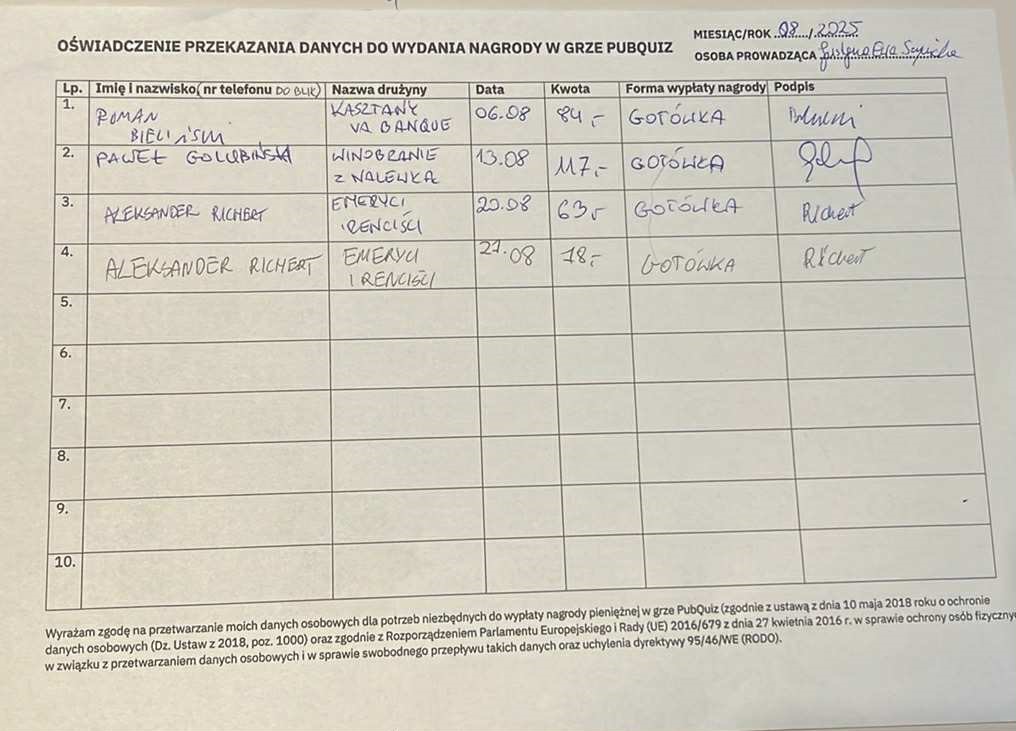 OŚWIADCZENIE PRZEKAZANIA DANYCH DO WYDANIA NAGRODY W GRZE PUBQUIZ
MIESIĄC/ROK 08/2025
OSOBA PROWADZĄCA
Lp. Imię i nazwisko( nr telefonu DO BLIK) Nazwa drużyny Data Kwota Forma wypłaty nagrody Podpis
1. ROMAN KASZTANY 06.08 84,- GOTÓWKA
VA BANQUE
2. PAWEŁ WINOBRANIE 13.08 117,- GOTÓWKA
Z NALEWKĄ
3. ALEKSANDER RICHERT EMERYCI 20.08 63,- GOTÓWKA Richert
I RENCIŚCI
4. ALEKSANDER RICHERT EMERYCI 27.08 78,- GOTÓWKA Richert
I RENCIŚCI
5.
6.
7.
8.
9.
10.
Wyrażam zgodę na przetwarzanie moich danych osobowych dla potrzeb niezbędnych do wypłaty nagrody pieniężnej w grze PubQuiz (zgodnie z ustawą z dnia 10 maja 2018 roku o ochronie
danych osobowych (Dz. Ustaw z 2018, poz. 1000) oraz zgodnie z Rozporządzeniem Parlamentu Europejskiego i Rady (UE) 2016/679 z dnia 27 kwietnia 2016 r. w sprawie ochrony osób fizyczny
w związku z przetwarzaniem danych osobowych i w sprawie swobodnego przepływu takich danych oraz uchylenia dyrektywy 95/46/WE (RODO).